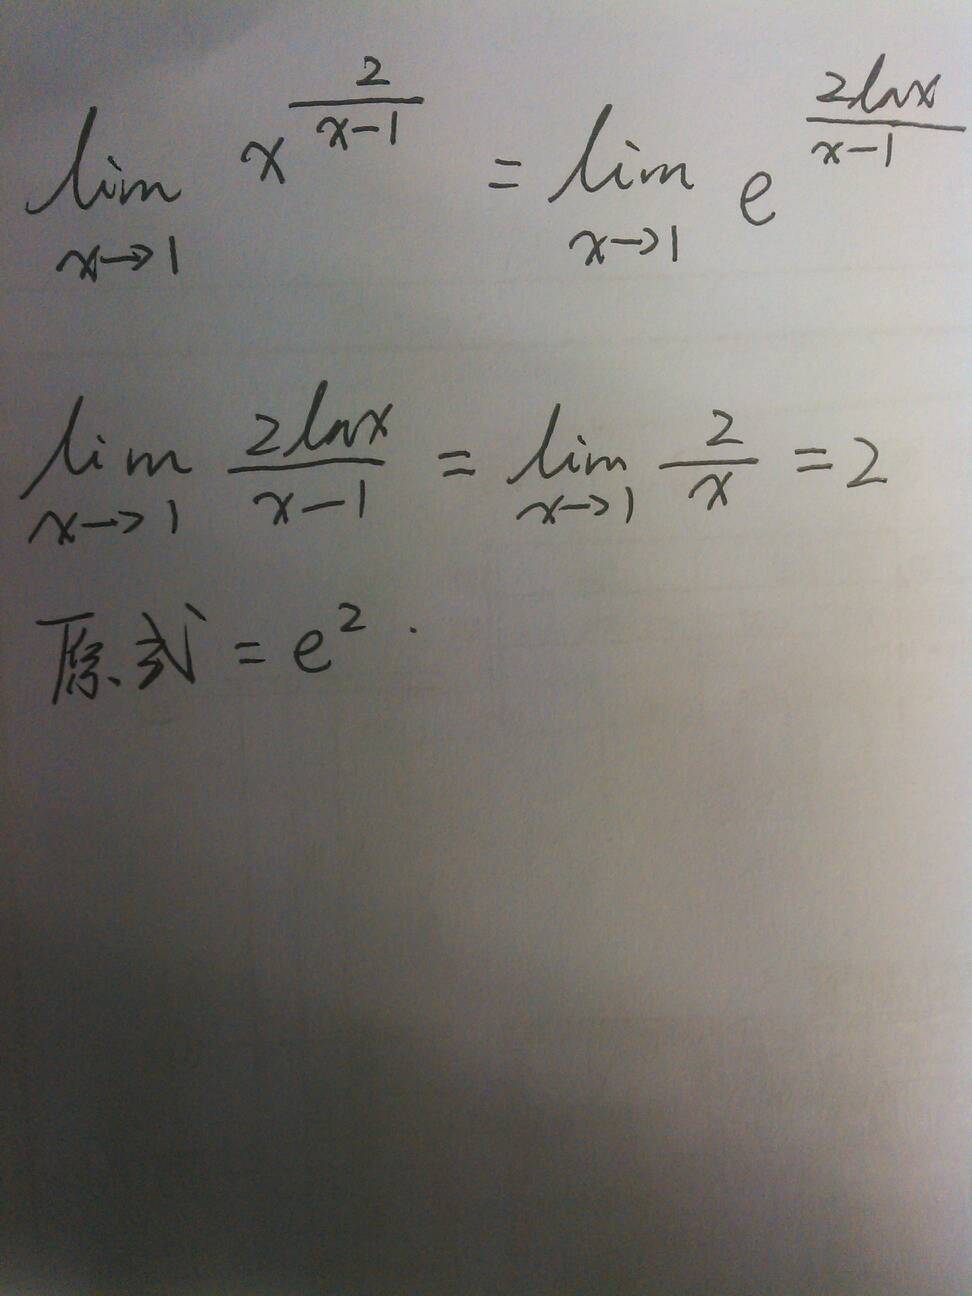 lim x→1 x^(2/(x-1)) = lim x→1 e^(2lnx/(x-1))
lim x→1 2lnx/(x-1) = lim x→1 2/x = 2
原式 = e^2.